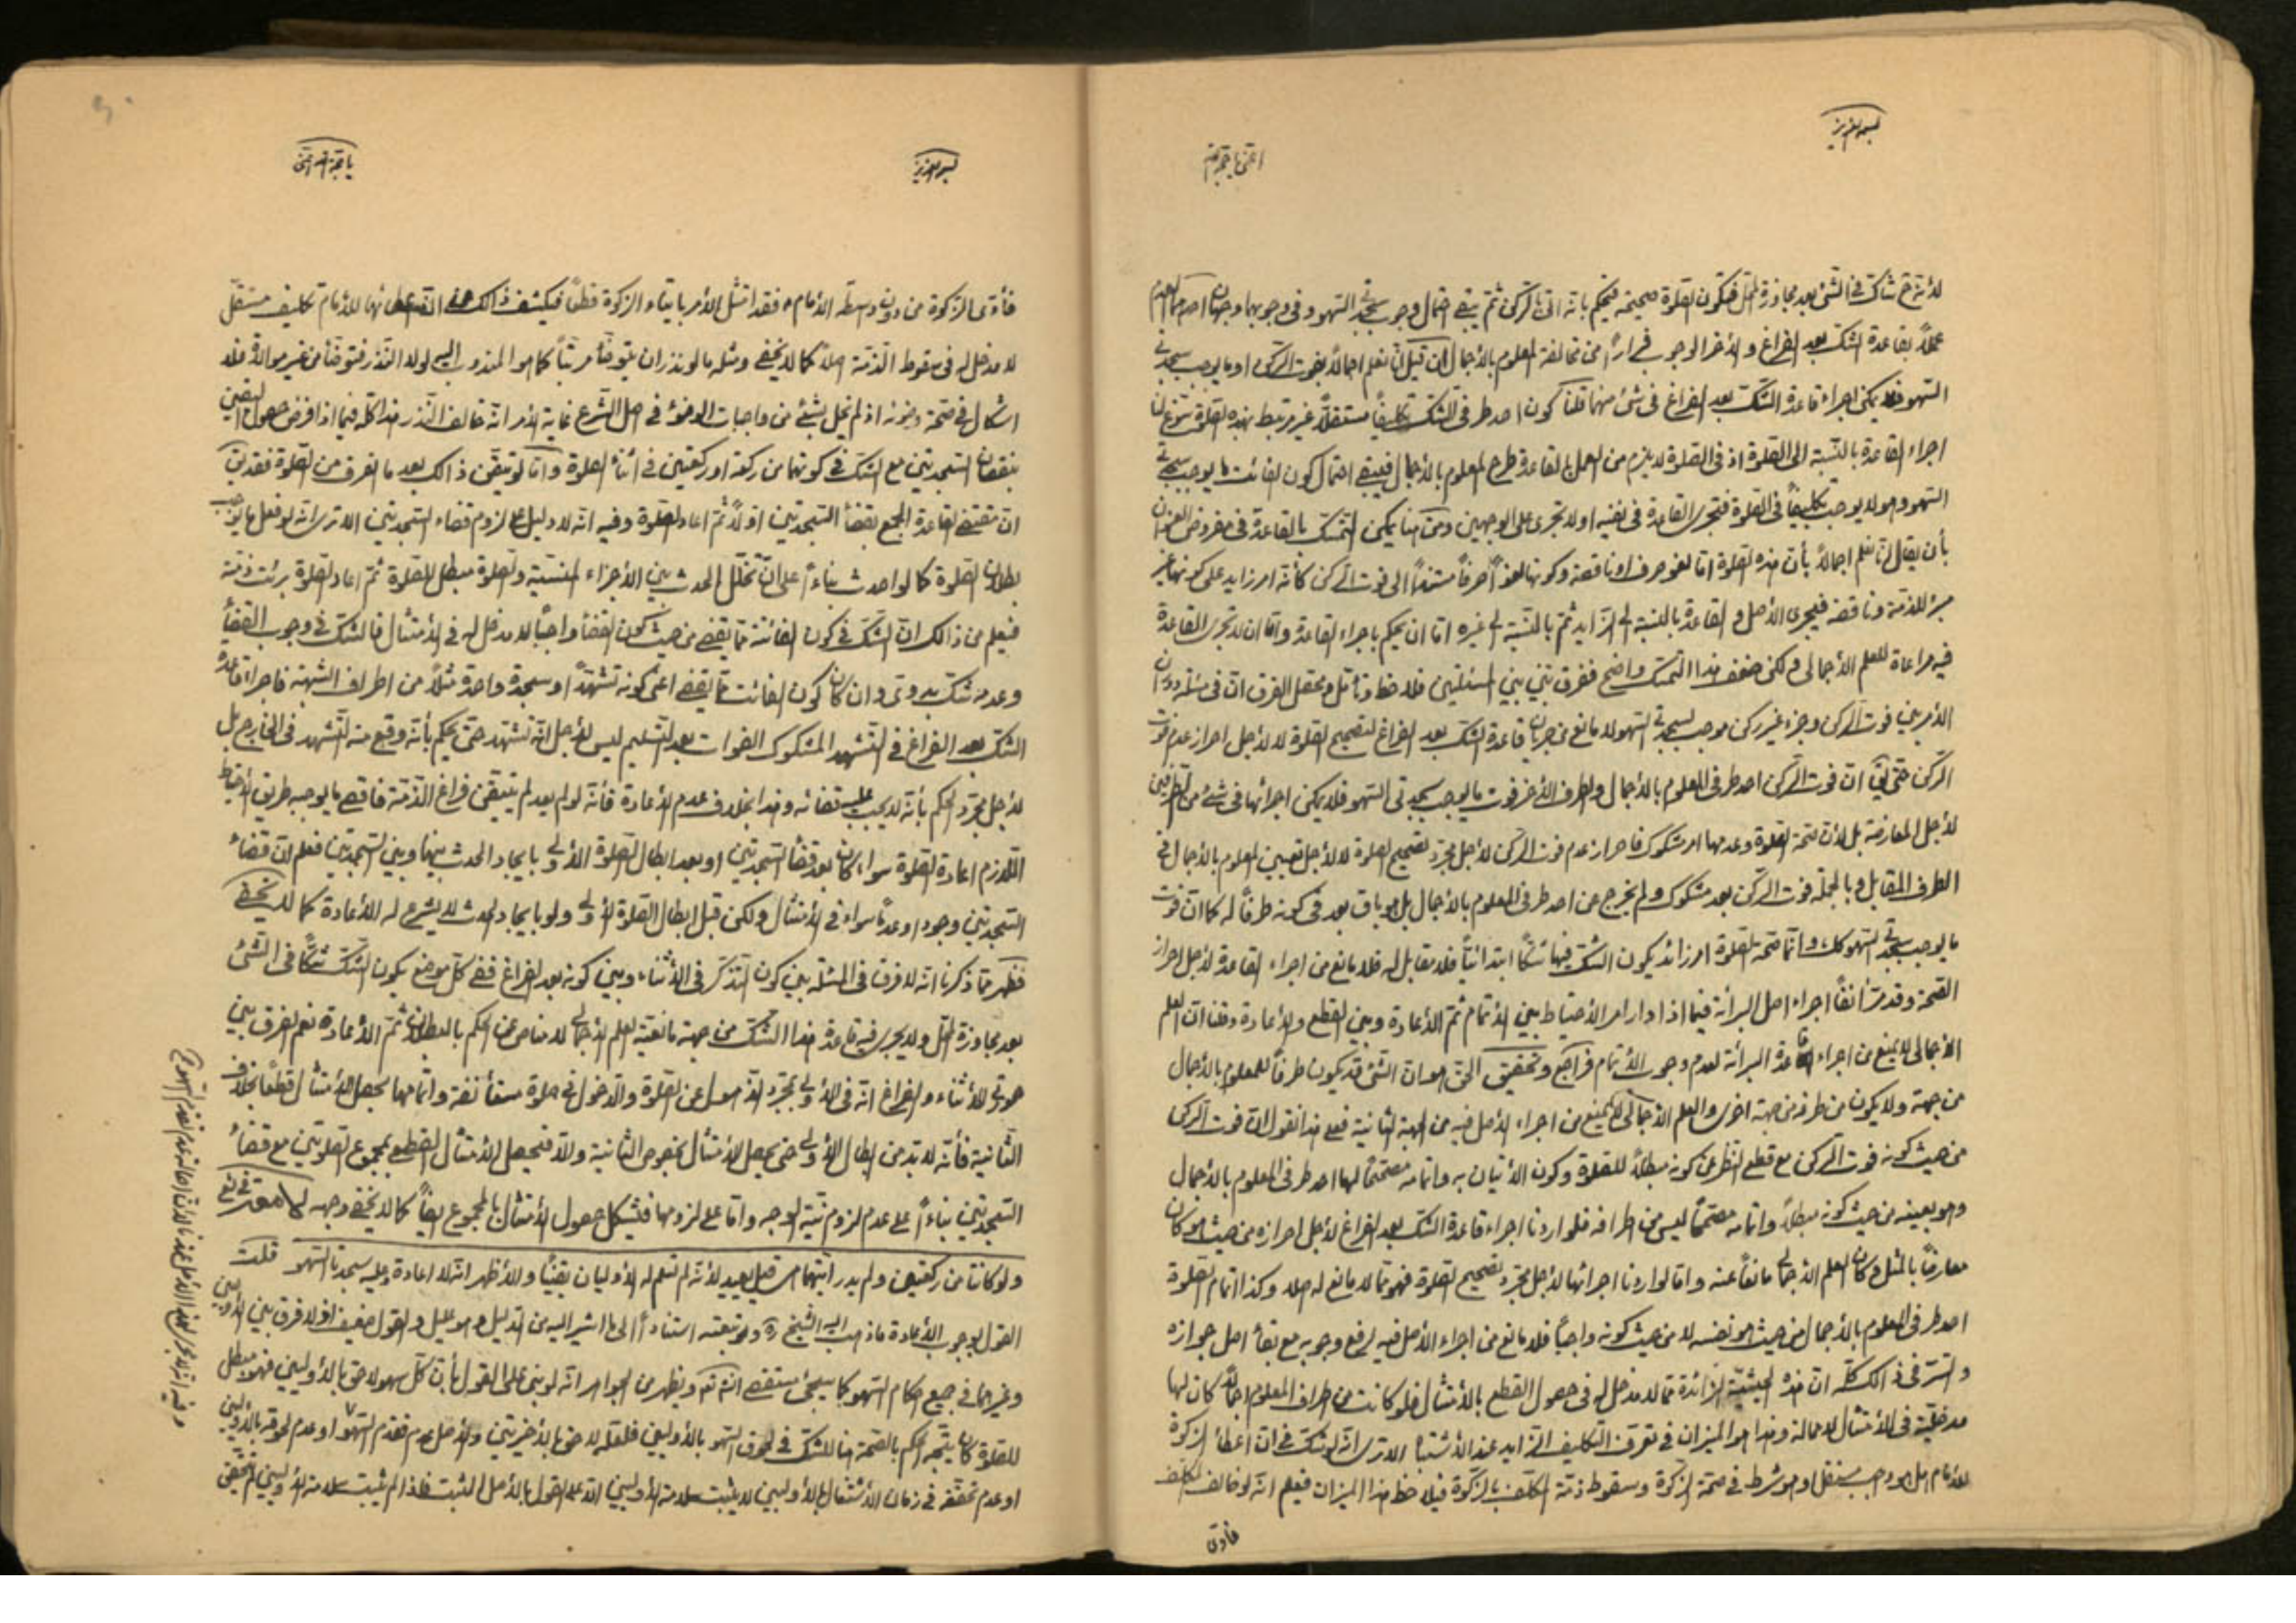 بسمه العزيز
لأنه ح شاك في الشئ بعد تجاوز المحل فتكون الصلوة صحيحة فيحكم بانه اتى بالركن ثم يبقى احتمال وجوب سجدتي السهو وفي وجوبهما وجهان احدهما العدم
عملاً بقاعدة الشك بعد الفراغ والآخر الوجوب فراراً من مخالفة المعلوم بالأجمال فان قيل انا نعلم اجمالاً بفوت الركن او ما يوجب سجدتي
السهو فلا يمكن اجراء قاعدة الشك بعد الفراغ في شئ منهما قلنا كون احد طرفي الشك تكليفاً مستقلاً غير مرتبط بهذه الصلوة
اجراء القاعدة بالنسبة الى الصلوة اذ في الصلوة لا يلزم من العمل بالقاعدة طرح المعلوم بالأجمال فيبقى احتمال كون الفائت ما يوجب سجدتي
السهو وهو لا يوجب تكليفاً في الصلوة فتجري القاعدة في نفيه او لا تجري على الوجهين ومن هنا يمكن التمسك بالقاعدة في مفروض العنوان
بأن يقال انا نعلم اجمالاً بأن هذه الصلوة اما لغو صرف او ناقصة وكونها لغواً صرفاً مستنداً الى فوت الركن كأنه امر زايد على كونها غير
مبرء للذمة وناقصة فيجري الأصل والقاعدة بالنسبة الى الزايد ثم بالنسبة الى غيره اما ان يحكم باجراء القاعدة واما ان لا تجري القاعدة
فيه مراعاة للعلم الأجمالي ولكن ضعف هذا التمسك واضح ففرق بين بين المسئلتين فلاحظ وتأمل ومحصل الفرق ان في مسئلة دوران
الأمر بين فوت الركن وجزء غير ركن موجب لسجدتي السهو لا مانع من جريان قاعدة الشك بعد الفراغ لتصحيح الصلوة لا لأجل احراز عدم فوت
الركن حتى يق ان فوت الركن احد طرفي المعلوم بالأجمال والطرف الآخر فوت ما يوجب سجدتي السهو فلا يمكن اجرائها في شئ من الطرفين
لأجل المعارضة بل لأن صحة الصلوة وعدمها امر مشكوك فاحراز عدم فوت الركن لأجل مجرد تصحيح الصلوة لا لأجل تعيين المعلوم بالأجمال في
الطرف المقابل وبالجملة فوت الركن بعد مشكوك ولم يخرج عن احد طرفي المعلوم بالأجمال بل هو باق بعد في كونه طرفاً له كما ان فوت
ما يوجب سجدتي السهو كك وانما صحة الصلوة امر زائد يكون الشك فيها شكاً ابتدائياً فلا مقابل له فلا مانع من اجراء القاعدة لأجل احراز
الصحة وقد مر آنفاً اجراء اصل البرائة فيما اذا دار امر الأحتياط بين الأتمام ثم الأعادة وبين القطع والأعادة وقلنا ان العلم
الأجمالي لا يمنع من اجراء قاعدة البرائة لعدم وجوب الأتمام فراجع وتحقيق الحق هو ان الشئ قد يكون طرفاً للمعلوم بالأجمال
من جهة ولا يكون من طرفه من جهة اخرى والعلم الأجمالي لا يمنع من اجراء الأصل فيه من الجهة الثانية فعلى هذا نقول ان فوت الركن
من حيث كونه فوت الركن مع قطع النظر عن كونه مبطلاً للصلوة وكون الأتيان به واتمامه مصححاً لها احد طرفي المعلوم بالأجمال
وهو بعينه من حيث كونه مبطلاً واتمامه مصححاً ليس من اطرافه فلو اردنا اجراء قاعدة الشك بعد الفراغ لأجل احرازه من حيث هو كان
معارضاً بالمثل وكان العلم الأجمالي مانعاً عنه واما لو اردنا اجرائها لأجل مجرد تصحيح الصلوة فهو مما لا مانع له اصلا وكذا اتمام الصلوة
احد طرفي المعلوم بالأجمال من حيث هو نفسه لا من حيث كونه واجباً فلا مانع من اجراء الأصل فيه لرفع وجوبه مع بقاء اصل جوازه
والسر في ذلك كله ان هذه الحيثية الزائدة مما لا مدخل له في حصول القطع بالأمتثال فلو كانت من اطراف المعلوم اجمالاً كان لها
مدخلية في الأمتثال لا محالة وهذا هو الميزان في تعرف التكليف الزايد عند الأشتباه الا ترى انه لو شك في ان اعطاء الزكوة
للأمام هل هو واجب مستقل او هو شرط في صحة الزكوة وسقوط ذمة المكلف بالزكوة فيلاحظ هذا الميزان فيعلم انه لو خالف المكلف
فأدى
بسمه العزيز
فأدى الزكوة من دون وساطة الأمام فقد امتثل الأمر بايتاء الزكوة قطعاً فيكشف ذالك عن ان اعطائها للأمام تكليف مستقل
لا مدخل له في سقوط الذمة اصلاً كما لا يخفى ومثله ما لو نذر ان يتوضأ مرتباً كما هو المندوب اليه لولا النذر فتوضأ من غير موالاة فلا
اشكال في صحة وضوئه اذ لم يخل بشئ من واجبات الوضوء في اصل الشرع غاية الأمر انه خالف النذر هذا كله فيما اذا فرض حصول اليقين
بنقصان السجدتين مع الشك في كونهما من ركعة او ركعتين في اثناء الصلوة واما لو تيقن ذالك بعد ما انصرف من الصلوة فقد يق
ان مقتضى القاعدة الجمع بقضاء السجدتين اولاً ثم اعادة الصلوة وفيه انه لا دليل على لزوم قضاء السجدتين الا ترى انه لو فعل ما يوجب
بطلان الصلوة كما لو احدث بناءً على ان تخلل الحدث بين الأجزاء المنسية والصلوة مبطل للصلوة ثم اعاد الصلوة برئت ذمته
فيعلم من ذالك ان الشك في كون الفائتة مما يقضى من حيث كون القضاء واجباً لا مدخل له في الأمتثال فالشك في وجوب القضاء
وعدمه شك بدوي وان كان كون الفائت مما يقضى اعني كونه تشهداً او سجدة واحدة مثلاً من اطراف الشبهة فاجراء قاعدة
الشك بعد الفراغ في التشهد المشكوك الفوات بعد التسليم ليس لأجل انه تشهد حتى يحكم بأنه وقع منه التشهد في الخارج بل
لأجل مجرد الحكم بأنه لا يجب عليه قضائه وهذا بخلاف عدم الأعادة فأنه لو لم يعد لم يتيقن فراغ الذمة فاقصى ما يوجبه طريق الأحتياط
اللازم اعادة الصلوة سواء كان بعد قضاء السجدتين او بعد ابطال الصلوة الأولى بايجاد الحدث بينها وبين السجدتين فعلم ان قضاء
السجدتين وجوداً وعدماً سواء في الأمتثال ولكن قبل ابطال الصلوة الأولى ولو بايجاد الحدث لا يشرع له الأعادة كما لا يخفى
فظهر مما ذكرنا انه لا فرق في المسئلة بين كون التذكر في الأثناء وبين كونه بعد الفراغ ففي كل موضع يكون الشك شكاً في الشئ
بعد تجاوز المحل ولا يجري فيه قاعدة هذا الشك من جهة مانعية العلم الأجمالي لا مناص عن الحكم بالبطلان ثم الأعادة نعم الفرق بين
صورتي الأثناء والفراغ انه في الأولى بمجرد الذهول عن الصلوة والدخول في صلوة مستأنفة واتمامها يحصل الأمتثال قطعاً بخلاف
الثانية فأنه لا بد من ابطال الأولى حتى يحصل الأمتثال بخصوص الثانية والا فيحصل الأمتثال القطعي بمجموع الصلوتين مع قضاء
السجدتين بناءاً على عدم لزوم نية الوجه واما على لزومها فيشكل حصول الأمتثال بالمجموع ايضاً كما لا يخفى وجهه
ولو كانتا من ركعتين ولم يدر ايتهما هي قيل يعيد لأنه لم تسلم له الأوليان يقيناً والأظهر انه لا اعادة وعليه سجدتا السهو قلت
القول بوجوب الأعادة ما ذهب اليه الشيخ ره وتبعته استناداً الى ما اشير اليه من الدليل وهو عليل والقول ضعيف اذ لا فرق بين الأوليين
وغيرهما في جميع احكام السهو كما سيجئ مستقصى انش تع ويظهر من الجواهر انه لو بنى على القول بأن كل سهو لاحق بالأوليين فهو مبطل
للصلوة كان يتجه الحكم بالصحة هنا للشك في لحوق السهو بالأوليين فلعله لاحق بالأخيرتين والأصل عدم تقدم السهو او عدم لحوقه بالأوليين
او عدم تحققه في زمان الأشتغال بالأوليين لا يثبت سلامة الأوليين الا على القول بالأصل المثبت فاذا لم يثبت سلامة الأوليين لم يتحقق